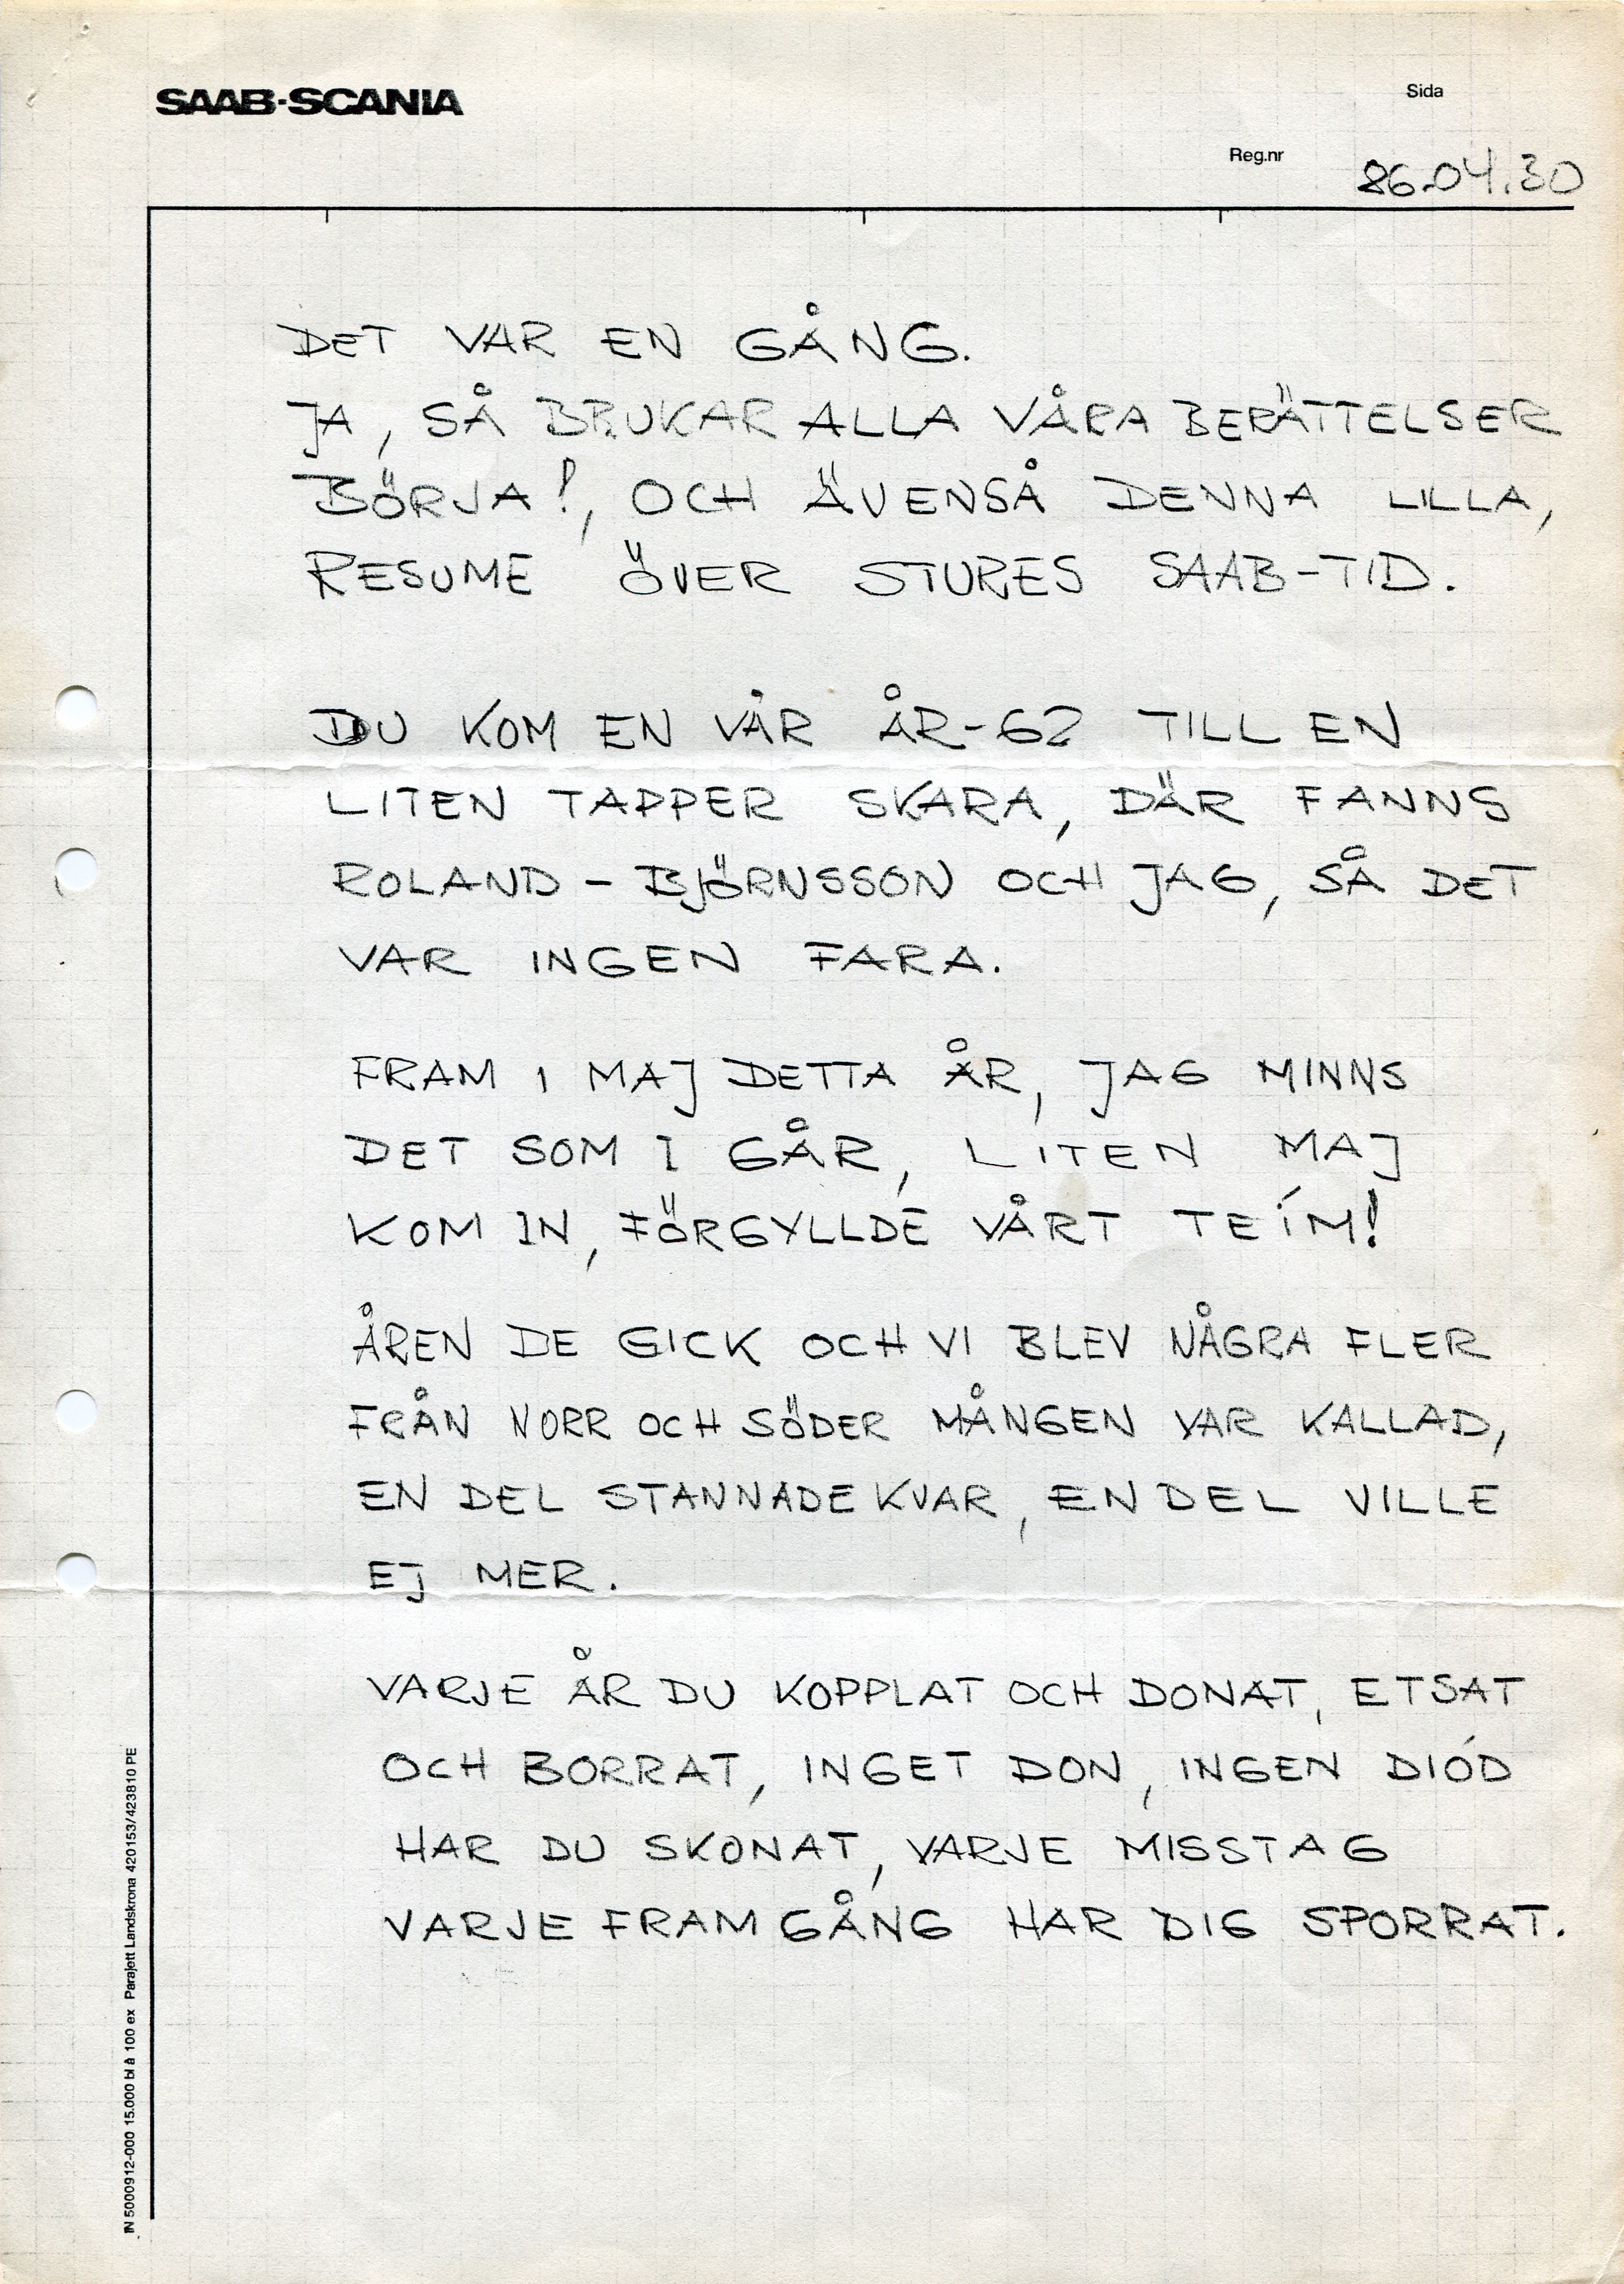 SAAB-SCANIA
Sida
Reg.nr
86.04.30
DET VAR EN GÅNG.
JA, SÅ BRUKAR ALLA VÅRA BERÄTTELSER
BÖRJA!, OCH ÄVENSÅ DENNA LILLA,
RESUME ÖVER STURES SAAB-TID.
DU KOM EN VÅR ÅR-62 TILL EN
LITEN TAPPER SKARA, DÄR FANNS
ROLAND - BJÖRNSSON OCH JAG, SÅ DET
VAR INGEN FARA.
FRAM I MAJ DETTA ÅR, JAG MINNS
DET SOM I GÅR, LITEN MAJ
KOM IN, FÖRGYLLDE VÅRT TEÍM!
ÅREN DE GICK OCH VI BLEV NÅGRA FLER
FRÅN NORR OCH SÖDER MÅNGEN VAR KALLAD,
EN DEL STANNADE KVAR, EN DEL VILLE
EJ MER.
VARJE ÅR DU KOPPLAT OCH DONAT, ETSAT
OCH BORRAT, INGET DON, INGEN DIÓD
HAR DU SKONAT, VARJE MISSTAG
VARJE FRAMGÅNG HAR DIG SPORRAT.
IN 5000912-000 15.000 bl à 100 ex Parajett Landskrona 420153/423810 PE